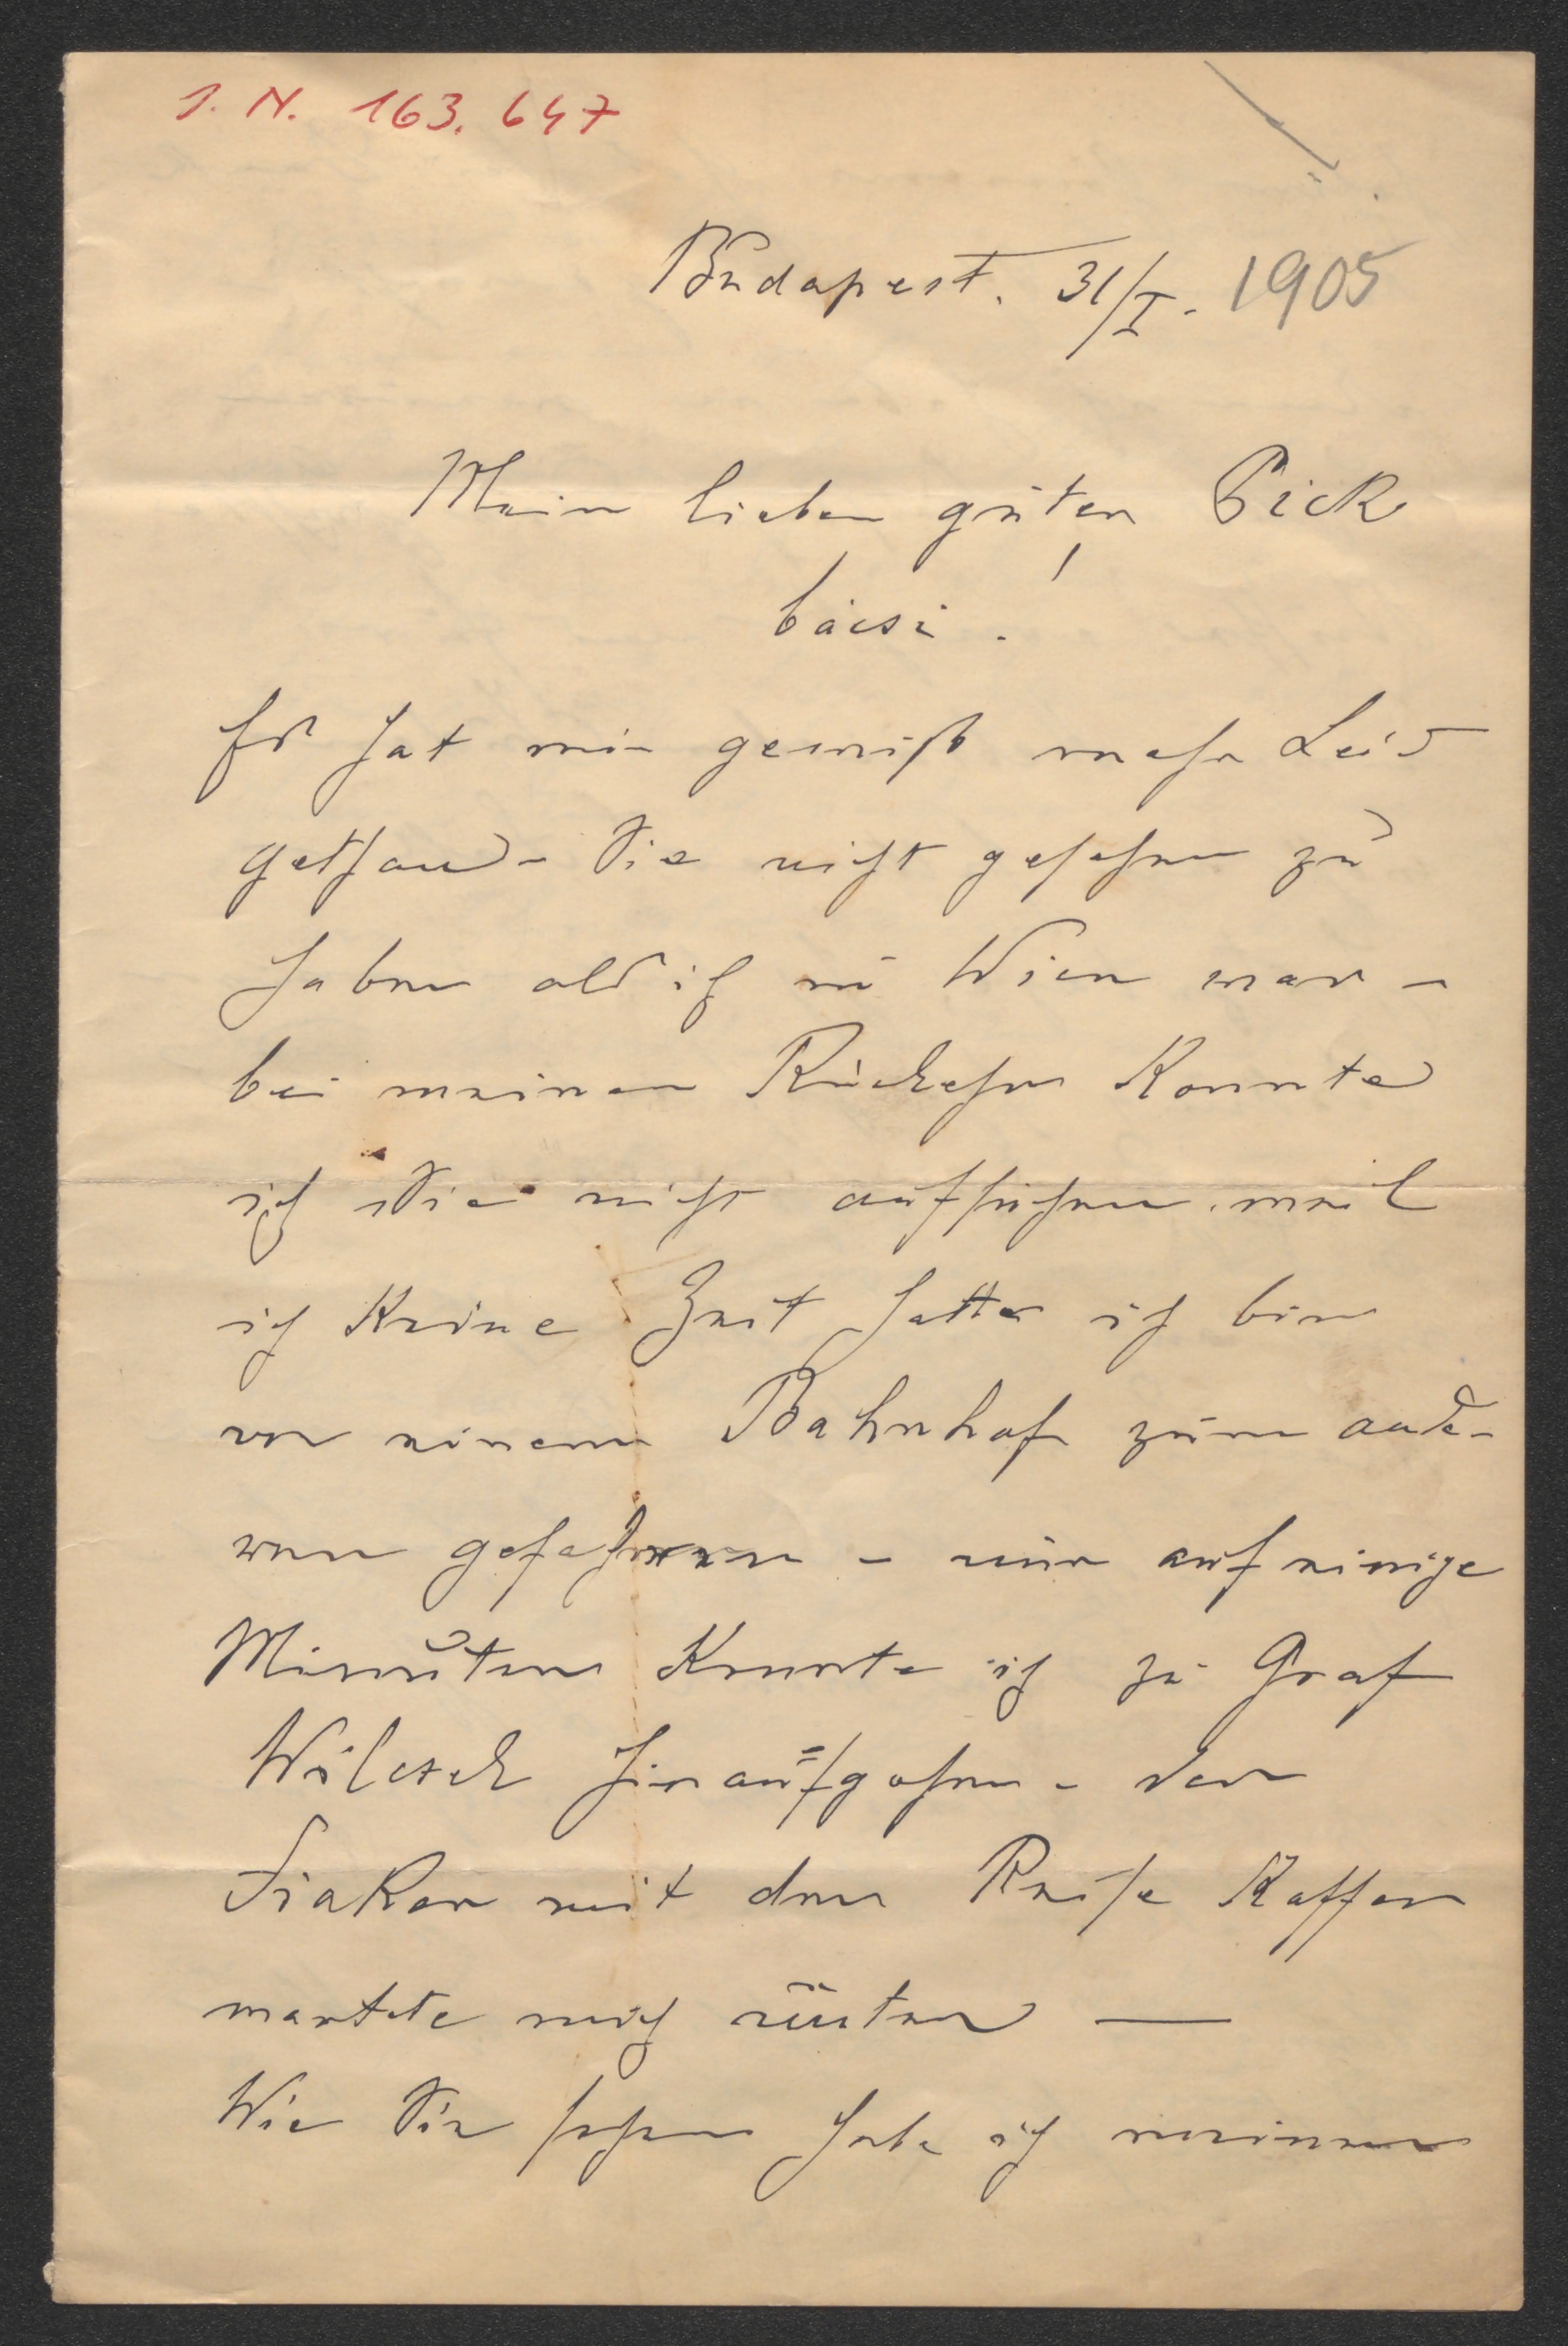 I. N. 163.647
Budapest. 31/I. 1905
Mein lieber guter Pick
bácsi!
Es hat mir gewiß mehr Leid
gethan – Sie nicht gesehen zu
haben als ich in Wien war –
bei meiner Rückkehr konnte
ich Sie nicht aufsuchen. weil
ich keine Zeit hatte ich bin
von einem Bahnhof zum ande-
ren gefahren – nur auf einige
Minuten konnte ich zu Graf
Wilczek hinaufgehen – der
Fiaker mit dem Reise Koffer
wartete mich unten —
Wie Sie sehen habe ich meinen